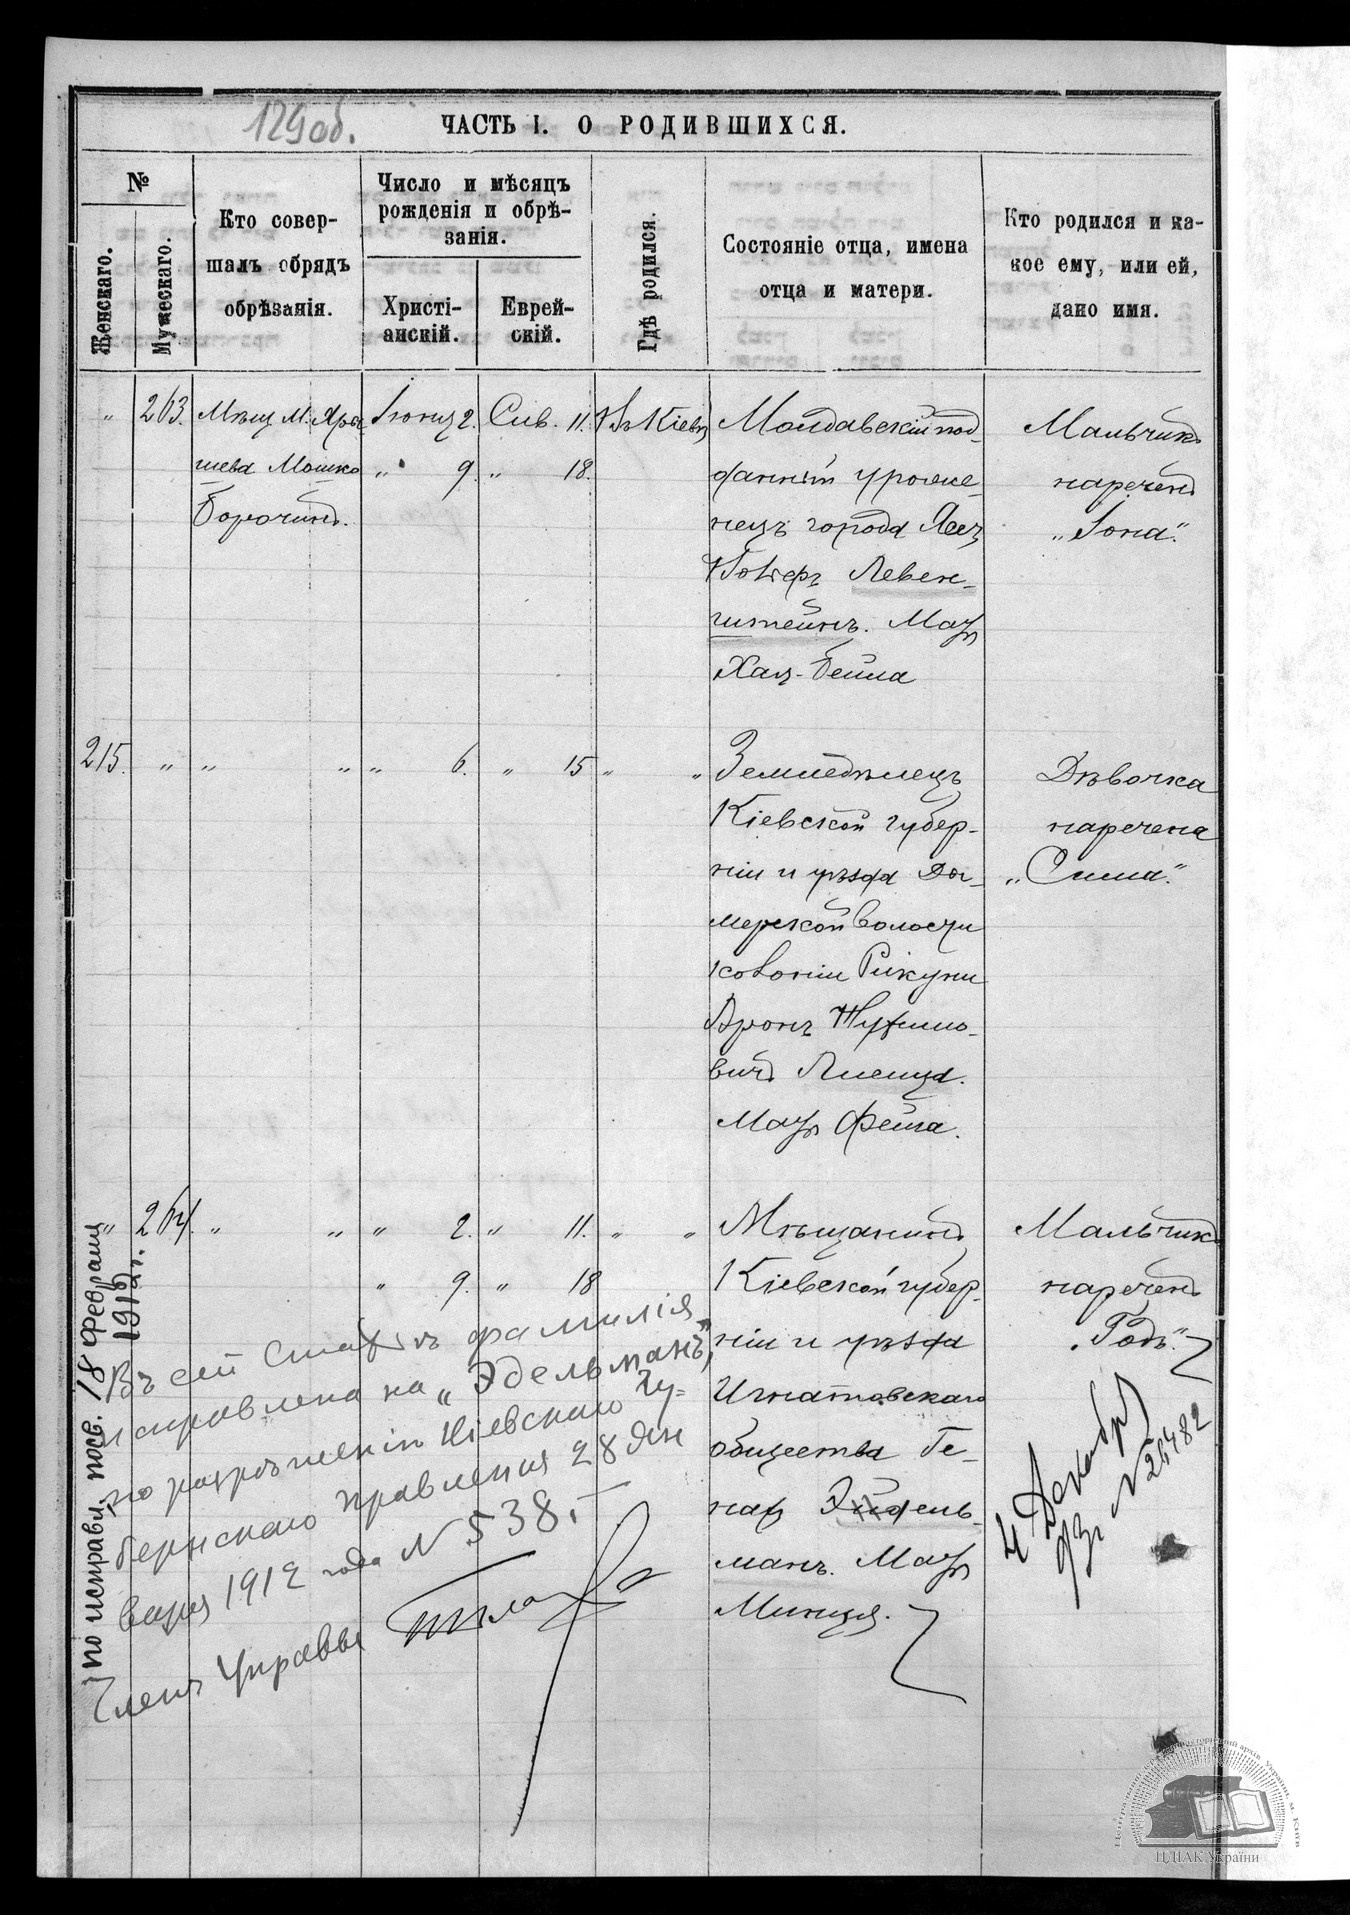 129об.
ЧАСТЬ I. О РОДИВШИХСЯ.
№
Женскаго.
Мужескаго.
Кто совер-
шалъ обрядъ
обрѣзанія.
Число и мѣсяцъ
рожденія и обрѣ-
занія.
Христі-
анскій.
Еврей-
скій.
Гдѣ родился.
Состояніе отца, имена
отца и матери.
Кто родился и ка-
кое ему, или ей,
дано имя.
„ 263. Мѣщ. м. Іюня 2. Сив. 11. Въ Кіевѣ
Мошко „ 9. „ 18.
Молдавскій под-
данный уроже-
нецъ города Яссъ
Левен-
штейнъ. Мать
Хая-Бейла
Мальчикъ
нареченъ
„Іона".
215. „ „ „ „ 6. „ 15 „ „
Земледѣлецъ
Кіевской губер-
ніи и уѣзда Ды-
мерской волости
колоніи Рикуни
Аронъ Нухимо-
вичъ
Мать Фейга.
Дѣвочка
наречена
„Сима".
„ 264. „ „ „ 2. „ 11. „ „
„ 9. „ 18
Мѣщанинъ
Кіевской губер-
ніи и уѣзда
Игнатовскаго
общества Бе-
Эйдель-
манъ. Мать
Минця.
Мальчикъ
нареченъ
4 Декабря
913г. № 26482
по исправл. посв. 18 февраля
1912г.
Въ сей статьѣ фамилія
исправлена на „Эдельманъ",
по разрѣшенію Кіевскаго Гу-
бернскаго Правленія 28 Ян-
варя 1912 года № 538.
Членъ Управы
ЦДІАК України